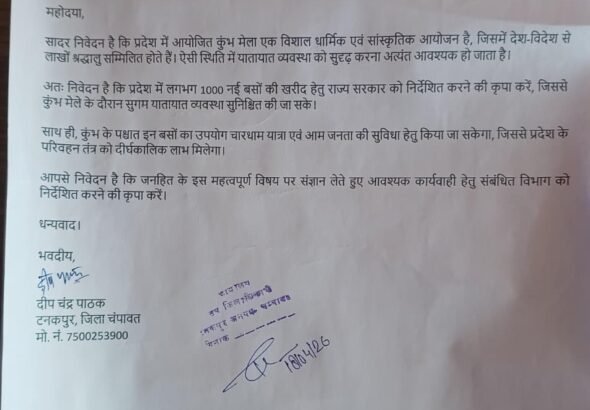 महोदया,
सादर निवेदन है कि प्रदेश में आयोजित कुंभ मेला एक विशाल धार्मिक एवं सांस्कृतिक आयोजन है, जिसमें देश-विदेश से
लाखों श्रद्धालु सम्मिलित होते हैं। ऐसी स्थिति में यातायात व्यवस्था को सुदृढ़ करना अत्यंत आवश्यक हो जाता है।
अतः निवेदन है कि प्रदेश में लगभग 1000 नई बसों की खरीद हेतु राज्य सरकार को निर्देशित करने की कृपा करें, जिससे
कुंभ मेले के दौरान सुगम यातायात व्यवस्था सुनिश्चित की जा सके।
साथ ही, कुंभ के पश्चात इन बसों का उपयोग चारधाम यात्रा एवं आम जनता की सुविधा हेतु किया जा सकेगा, जिससे प्रदेश के
परिवहन तंत्र को दीर्घकालिक लाभ मिलेगा।
आपसे निवेदन है कि जनहित के इस महत्वपूर्ण विषय पर संज्ञान लेते हुए आवश्यक कार्यवाही हेतु संबंधित विभाग को
निर्देशित करने की कृपा करें।
धन्यवाद।
भवदीय,
दीप चंद्र पाठक
टनकपुर, जिला चंपावत
मो. नं. 7500253900
कार्यालय
उप जिलाधिकारी
18/04/26